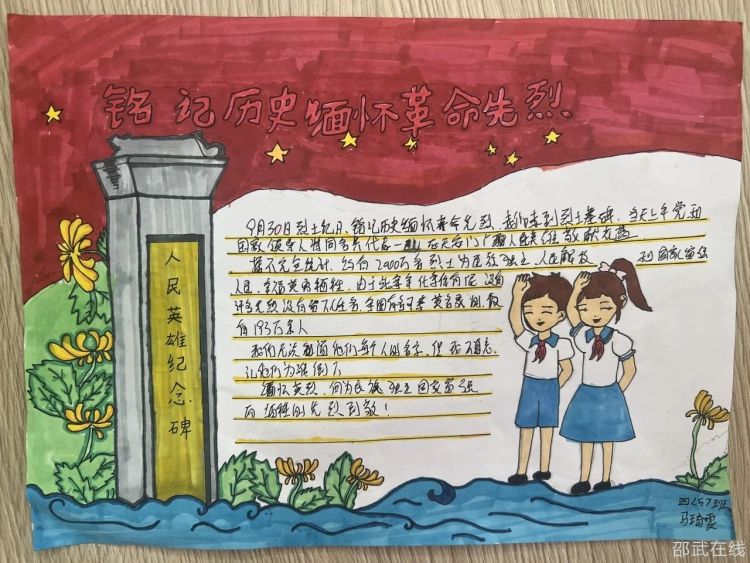 铭记历史缅怀革命先烈
人民英雄纪念碑
9月30日烈士纪念日、铭记历史缅怀革命先烈，我们来到烈士墓碑，当天上午党和
国家领导人将同各界代表一起在天安门广场向人民英雄敬献花篮
据不完全统计，约有2000万名烈士为民族独立、人民解放和国家富强
人民幸福英勇牺牲，由于战争年代条件有限，没有
许多先烈没有留下姓名，全国有名可考英名录的仅
有193万余人
我们无法知道他们每个人的名字，但我不应忘
记他们为谁倒下
缅怀英烈，向为民族独立国家富强
而牺牲的先烈致敬！
四（5）班
马琦雯
邵武在线